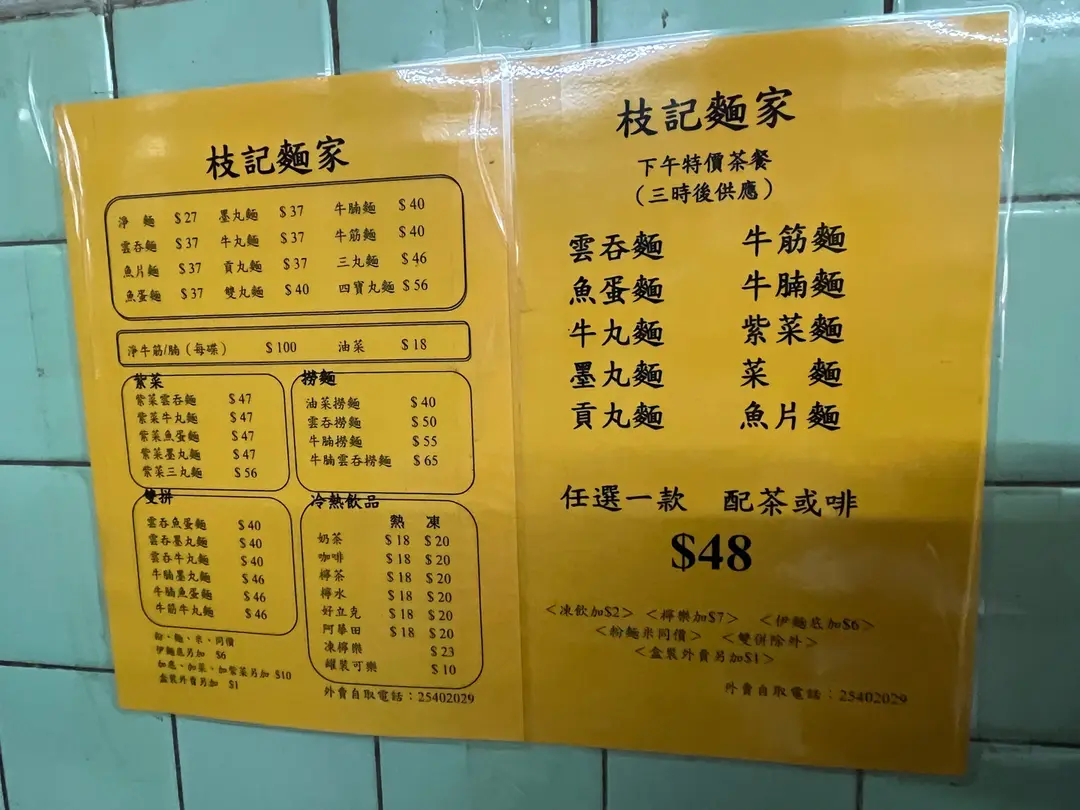 枝記麵家
淨　麵 $27 墨丸麵 $37 牛腩麵 $40
雲吞麵 $37 牛丸麵 $37 牛筋麵 $40
魚片麵 $37 貢丸麵 $37 三丸麵 $46
魚蛋麵 $37 雙丸麵 $40 四寶丸麵 $56
淨牛筋/腩（每碟） $100 油菜 $18
紫菜
紫菜雲吞麵 $47
紫菜牛丸麵 $47
紫菜魚蛋麵 $47
紫菜墨丸麵 $47
紫菜三丸麵 $56
撈麵
油菜撈麵 $40
雲吞撈麵 $50
牛腩撈麵 $55
牛腩雲吞撈麵 $65
雙拼
雲吞魚蛋麵 $40
雲吞墨丸麵 $40
雲吞牛丸麵 $40
牛腩墨丸麵 $46
牛腩魚蛋麵 $46
牛筋牛丸麵 $46
冷熱飲品
熱 凍
奶茶 $18 $20
咖啡 $18 $20
檸茶 $18 $20
檸水 $18 $20
好立克 $18 $20
阿華田 $18 $20
凍檸樂 $23
罐裝可樂 $10
粉、麵、米、同價
伊麵底另加 $6
加底、加菜、加紫菜另加 $10
盒裝外賣另加 $1
外賣自取電話：25402029
枝記麵家
下午特價茶餐
（三時後供應）
雲吞麵 牛筋麵
魚蛋麵 牛腩麵
牛丸麵 紫菜麵
墨丸麵 菜　麵
貢丸麵 魚片麵
任選一款 配茶或啡
$48
＜凍飲加$2＞ ＜檸樂加$7＞ ＜伊麵底加$6＞
＜粉麵米同價＞ ＜雙併除外＞
＜盒裝外賣另加$1＞
外賣自取電話：25402029